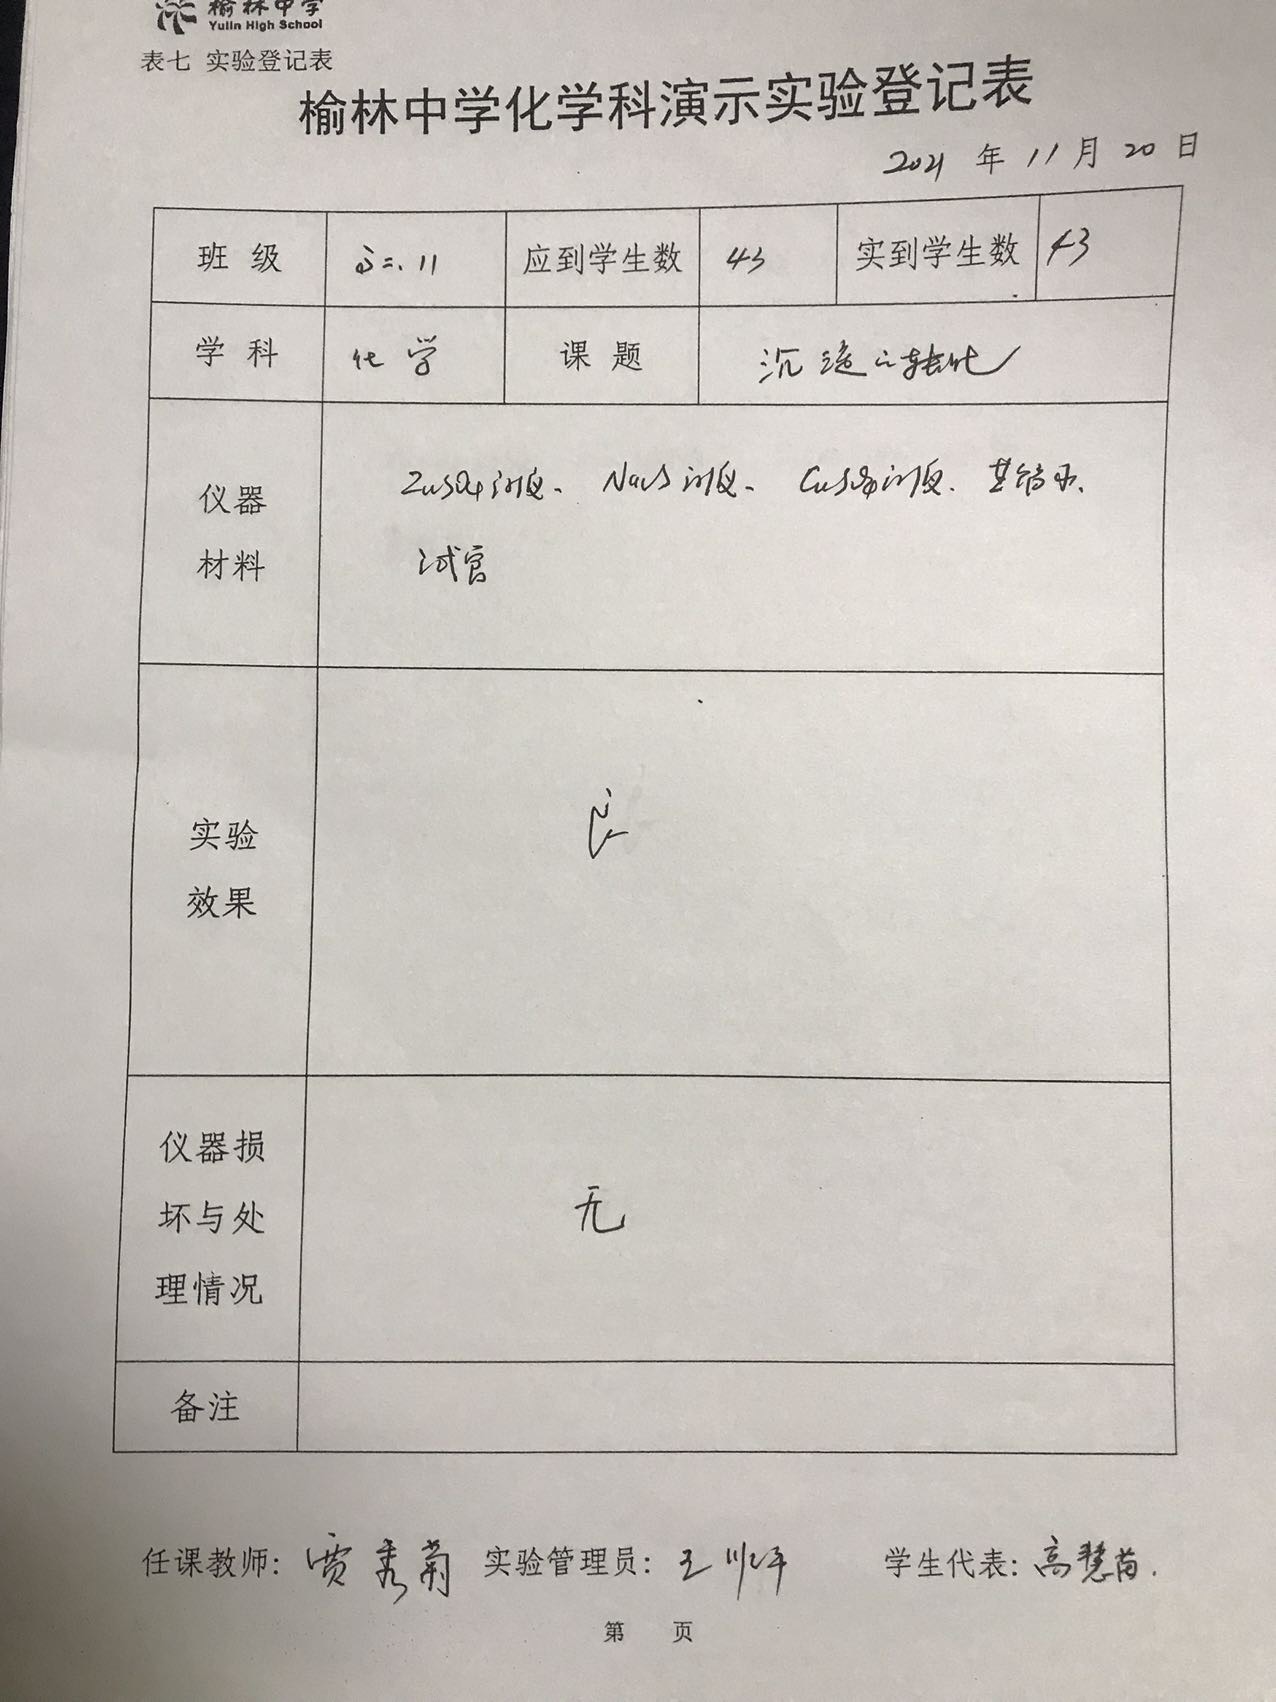 榆林中学
Yulin High School
表七 实验登记表
榆林中学化学科演示实验登记表
2021 年 11 月 20 日
班 级 高二.11 应到学生数 43 实到学生数 43
学 科 化学 课 题 沉淀的转化
仪器
材料
ZnSO4溶液、Na2S溶液、CuSO4溶液、蒸馏水、
试管
实验
效果
良
仪器损
坏与处
理情况
无
备注
任课教师: 贾秀菊 实验管理员: 王 学生代表: 高慧苗.
第 页